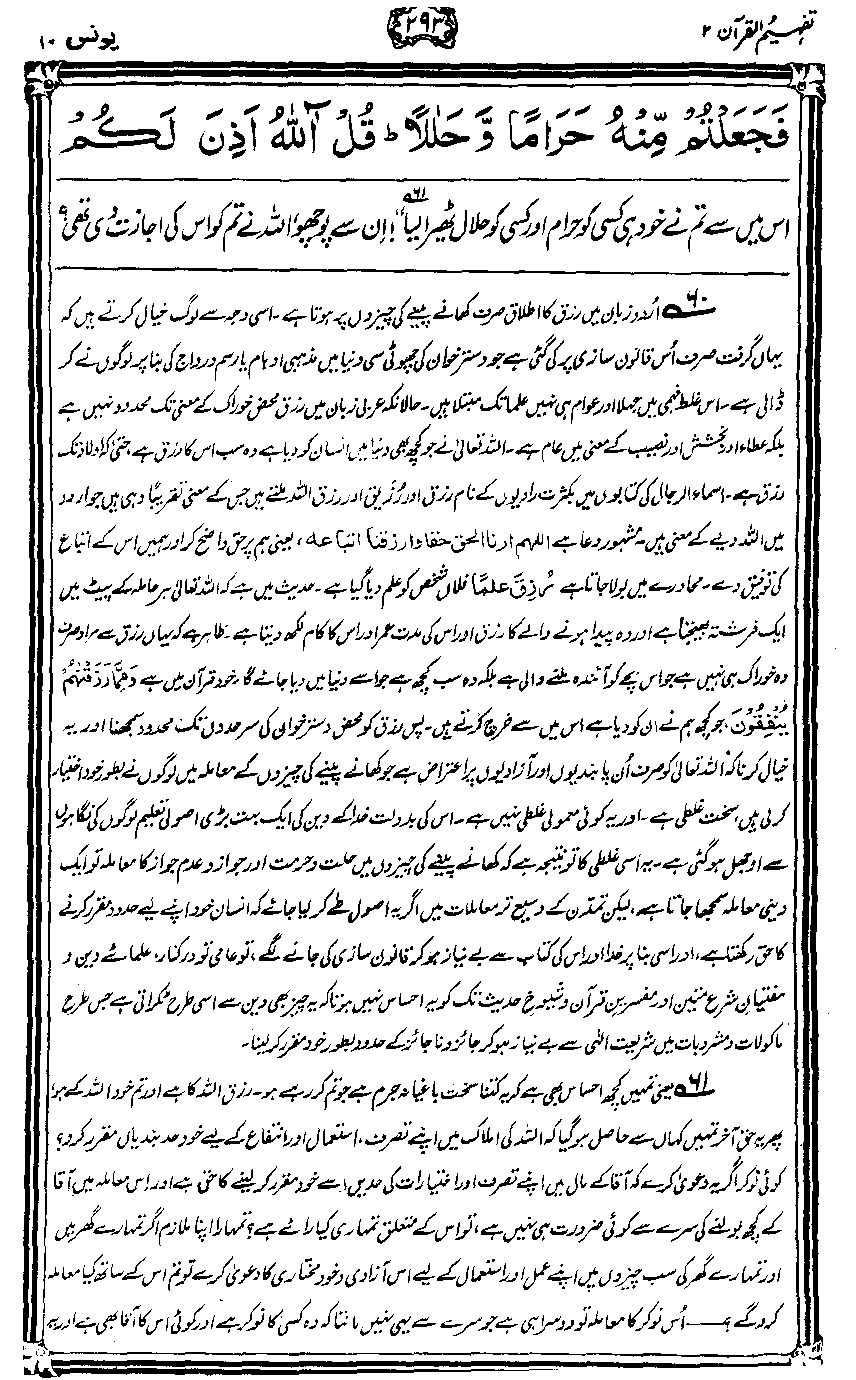 تفہیم القرآن ۲
۲۹۳
یونس ۱۰
فَجَعَلْتُمْ مِّنْهُ حَرَامًا وَّ حَلٰلًا ؕ قُلْ آٰللّٰهُ اَذِنَ لَكُمْ
اس میں سے تم نے خود ہی کسی کو حرام اور کسی کو حلال ٹھیرا لیا“! ۶۱ اِن سے پوچھو، اللہ نے تم کو اس کی اجازت دی تھی؟
۶۰ اُردو زبان میں رزق کا اطلاق صرف کھانے پینے کی چیزوں پر ہوتا ہے۔ اسی وجہ سے لوگ خیال کرتے ہیں کہ
یہاں گرفت صرف اُس قانون سازی پر کی گئی ہے جو دسترخوان کی چھوٹی سی دنیا میں مذہبی اوہام یا رسم و رواج کی بنا پر لوگوں نے کر
ڈالی ہے۔ اس غلط فہمی میں جہلا اور عوام ہی نہیں علما تک مبتلا ہیں۔ حالانکہ عربی زبان میں رزق محض خوراک کے معنی تک محدود نہیں ہے
بلکہ عطاء اور بخشش اور نصیب کے معنی میں عام ہے۔ اللہ تعالیٰ نے جو کچھ بھی دنیا میں انسان کو دیا ہے وہ سب اس کا رزق ہے، حتیٰ کہ اولاد تک
رزق ہے۔ اسماء الرجال کی کتابوں میں بکثرت راویوں کے نام رزق اور رُزَیق اور رزق اللہ ملتے ہیں جس کے معنی تقریبًا وہی ہیں جو اردو
میں اللہ دیے کے معنی ہیں۔ مشہور دعا ہے اللهم ارنا الحق حقا وارزقنا اتباعه، یعنی ہم پر حق واضح کر اور ہمیں اس کے اتباع
کی توفیق دے۔ محاورے میں بولا جاتا ہے رُزِقَ علمًا فلاں شخص کو علم دیا گیا ہے۔ حدیث میں ہے کہ اللہ تعالیٰ ہر حاملہ کے پیٹ میں
ایک فرشتہ بھیجتا ہے اور وہ پیدا ہونے والے کا رزق اور اس کی مدت عمر اور اس کا کام لکھ دیتا ہے۔ ظاہر ہے کہ یہاں رزق سے مراد صرف
وہ خوراک ہی نہیں ہے جو اس بچے کو آئندہ ملنے والی ہے بلکہ وہ سب کچھ ہے جو اسے دنیا میں دیا جائے گا۔ خود قرآن میں ہے وَمِمَّا رَزَقْنٰهُمْ
یُنْفِقُوْنَ، جو کچھ ہم نے ان کو دیا ہے اس میں سے خرچ کرتے ہیں۔ پس رزق کو محض دسترخوان کی سرحدوں تک محدود سمجھنا اور یہ
خیال کرنا کہ اللہ تعالیٰ کو صرف اُن پابندیوں اور آزادیوں پر اعتراض ہے جو کھانے پینے کی چیزوں کے معاملہ میں لوگوں نے بطور خود اختیار
کر لی ہیں، سخت غلطی ہے۔ اور یہ کوئی معمولی غلطی نہیں ہے۔ اس کی بدولت خدا کے دین کی ایک بہت بڑی اصولی تعلیم لوگوں کی نگاہوں
سے اوجھل ہو گئی ہے۔ یہ اسی غلطی کا تو نتیجہ ہے کہ کھانے پینے کی چیزوں میں حلت و حرمت اور جواز و عدم جواز کا معاملہ تو ایک
دینی معاملہ سمجھا جاتا ہے، لیکن تمدّن کے وسیع تر معاملات میں اگر یہ اصول طے کر لیا جائے کہ انسان خود اپنے لیے حدود مقرر کرنے
کا حق رکھتا ہے، اور اسی بنا پر خدا اور اس کی کتاب سے بے نیاز ہو کر قانون سازی کی جانے لگے، تو عامی تو درکنار، علمائے دین و
مفتیانِ شرع متین اور مفسرینِ قرآن و شیوخِ حدیث تک کو یہ احساس نہیں ہوتا کہ یہ چیز بھی دین سے اسی طرح ٹکراتی ہے جس طرح
ماکولات و مشروبات میں شریعت الٰہی سے بے نیاز ہو کر جائز و ناجائز کے حدود بطور خود مقرر کر لینا۔
۶۱ یعنی تمہیں کچھ احساس بھی ہے کہ یہ کتنا سخت باغیانہ جرم ہے جو تم کر رہے ہو۔ رزق اللہ کا ہے اور تم خود اللہ کے ہو،
پھر یہ حق آخر تمہیں کہاں سے حاصل ہو گیا کہ اللہ کی املاک میں اپنے تصرف، استعمال اور انتفاع کے لیے خود حد بندیاں مقرر کرو؟
کوئی نوکر اگر یہ دعویٰ کرے کہ آقا کے مال میں اپنے تصرف اور اختیارات کی حدیں اسے خود مقرر کر لینے کا حق ہے اور اس معاملہ میں آقا
کے کچھ بولنے کی سرے سے کوئی ضرورت ہی نہیں ہے، تو اس کے متعلق تمہاری کیا رائے ہے؟ تمہارا اپنا ملازم اگر تمہارے گھر میں
اور تمہارے گھر کی سب چیزوں میں اپنے عمل اور استعمال کے لیے اس آزادی و خود مختاری کا دعویٰ کرے تو تم اس کے ساتھ کیا معاملہ
کرو گے؟ — اُس نوکر کا معاملہ تو دوسرا ہی ہے جو سرے سے یہی نہیں مانتا کہ وہ کسی کا نوکر ہے اور کوئی اس کا آقا بھی ہے اور یہ